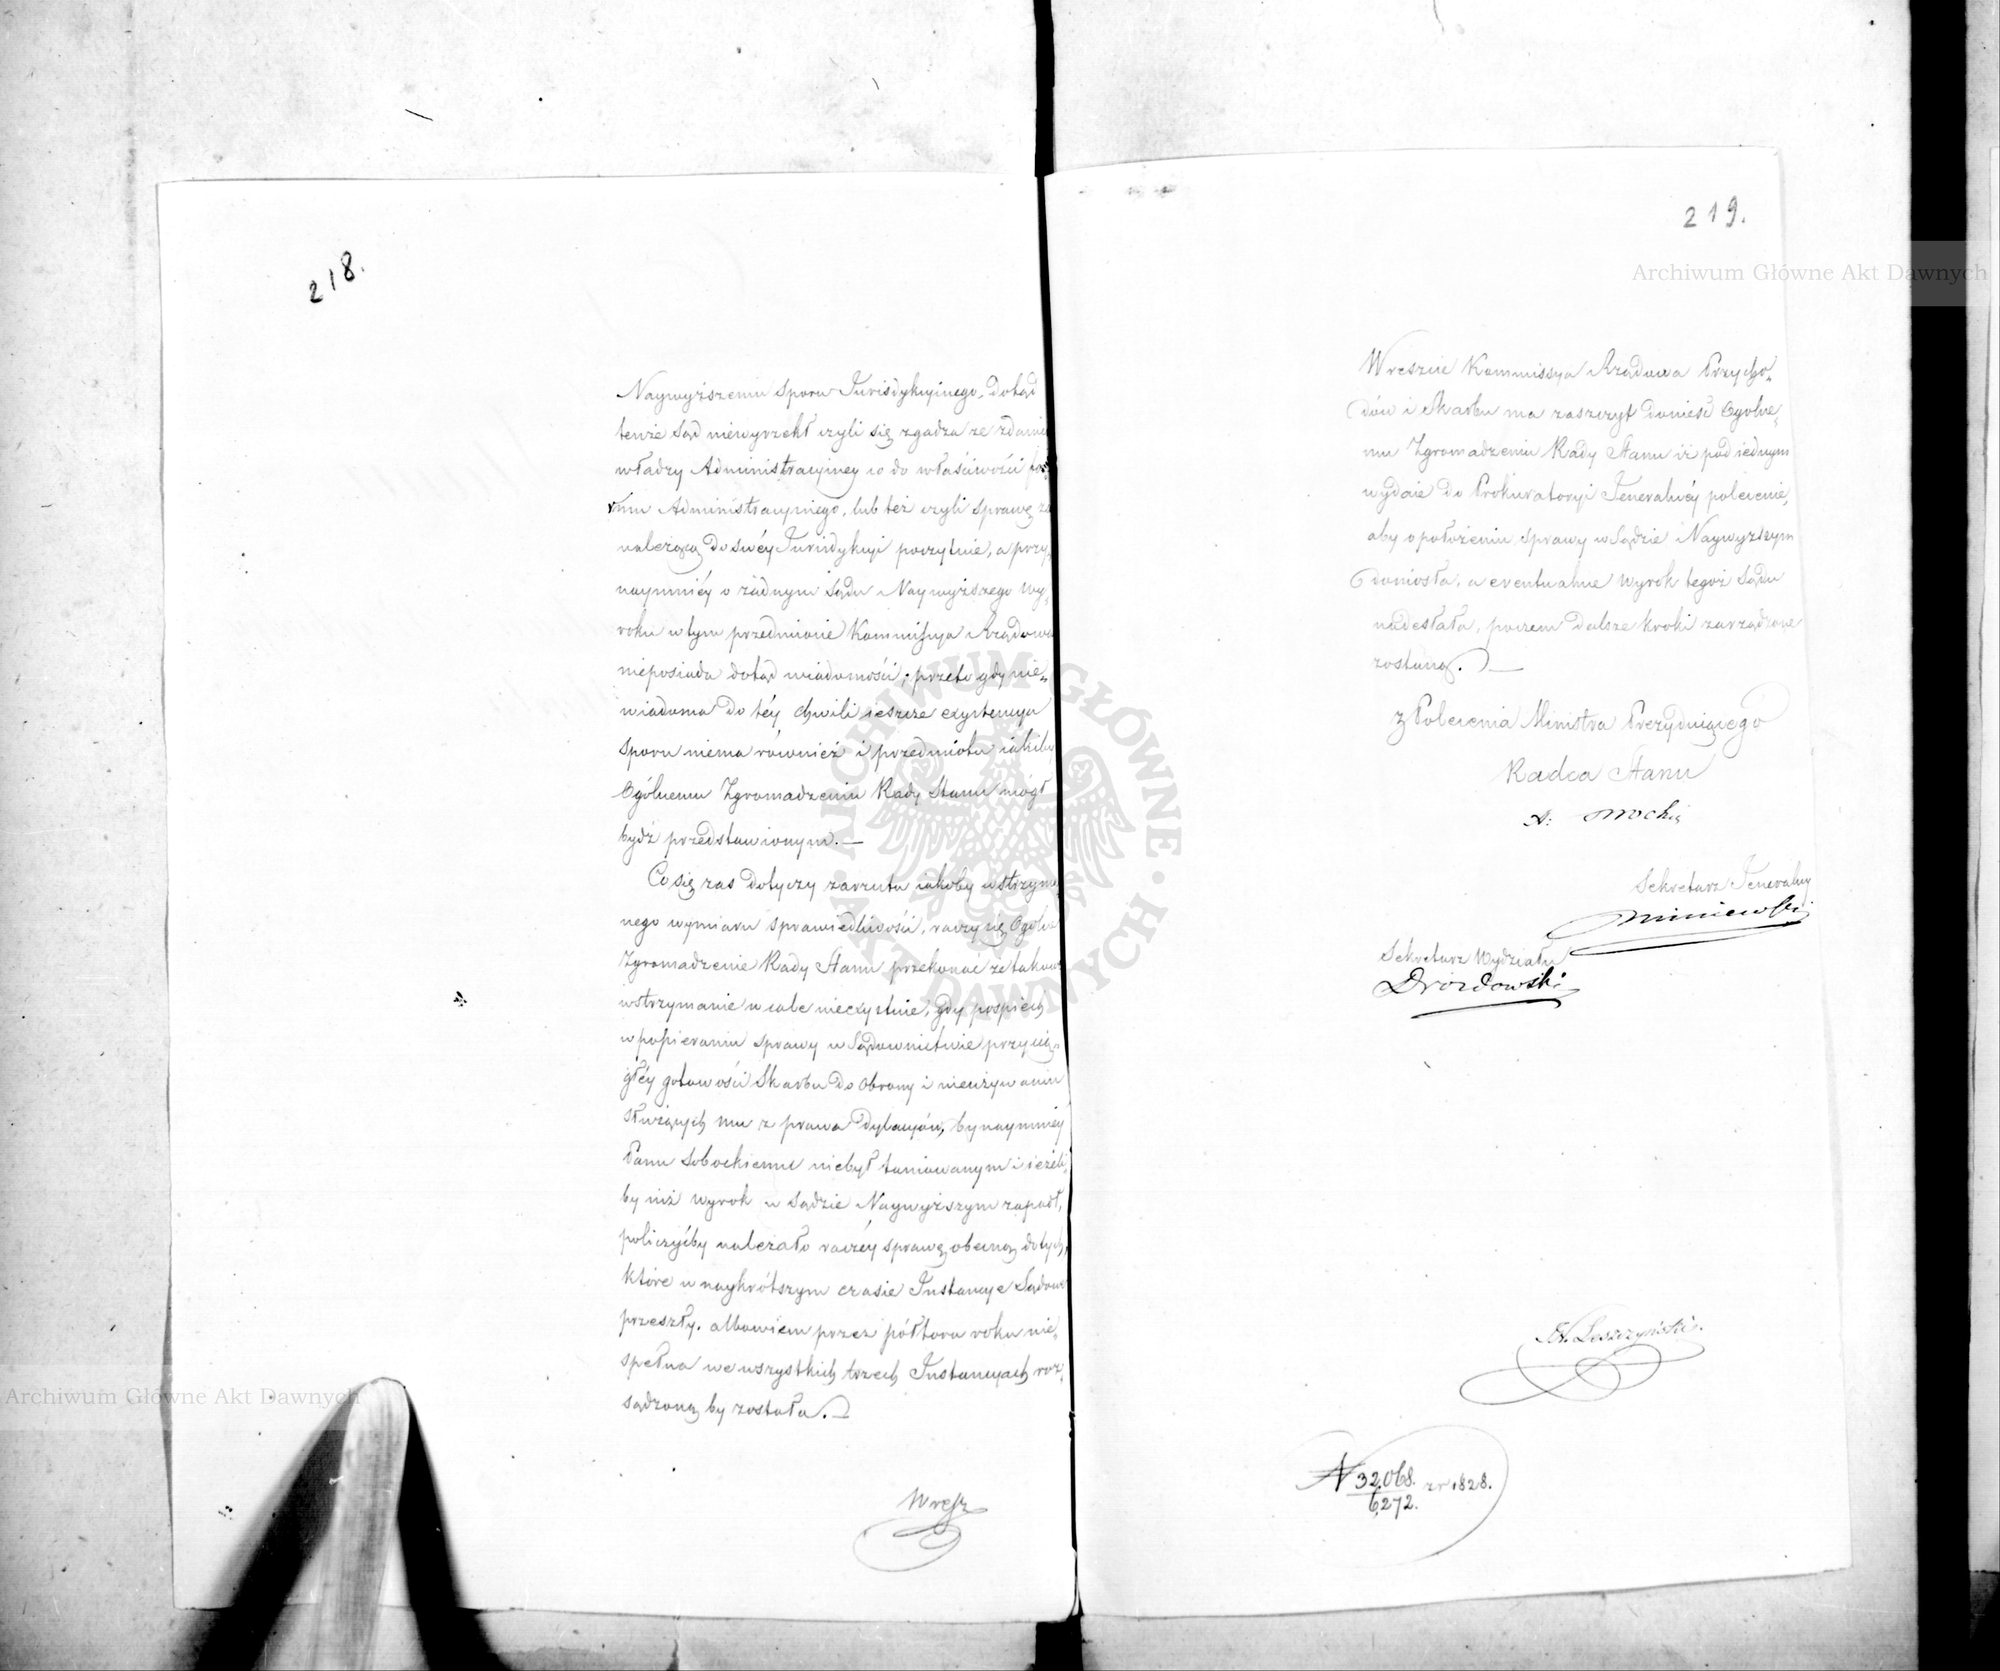 218.
Naywyższemu Sporu Jurisdykcyinego, dotąd
tenże Sąd niewyrzekł czyli się zgadza ze zdani
władzy Administracyiney co do właściwości fo
rum Administracyinego, lub też czyli Sprawę za
należącą do swéy Jurisdykcyi poczytuie, a przy„
naymniéy o żadnym Sądu Naywyższego Wy„
roku w tym przedmiocie Kommissya Rządowa
nieposiada dotąd wiadomości; przeto gdy nie„
wiadoma do téy chwili ieszcze exystencya
sporu niema również i przedmiotu iakiby
Ogólnemu Zgromadzeniu Rady Stanu mógł
bydź przedstawionym. —
Co się zaś dotyczy zarzutu iakoby wstrzyma
nego wymiaru sprawiedliwości, raczy się Ogólne
Zgromadzenie Rady Stanu przekonać że takowe
wstrzymanie w cale nieexystuie, gdy pospiech
w popieraniu Sprawy w Sądownictwie przy cią„
głéy gotowości Skarbu do obrony i nieużywaniu
służących mu z prawa Dylacyów, bynaymniey
Panu Sobockiemu niebył tamowanym i ieżeli„
by iuż Wyrok w Sądzie Naywyższym zapadł,
policzyćby należało raczéy sprawę obecną do tych,
które w naykrótszym czasie Instancye Sądowe
przeszły, albowiem przez półtora roku nie„
spełna we wszystkich trzech Instancyach roz„
sądzoną by została. —
Wresz
219.
Wreszcie Kommissya Rządowa Przycho„
dów i Skarbu ma zaszczyt donieść Ogólne„
mu Zgromadzeniu Rady Stanu iż pod iednym
wydaie do Prokuratoryi Jeneralnéy polecenie,
aby o położeniu Sprawy w Sądzie Naywyższym
doniosła, a eventualnie Wyrok tegoż Sądu
nadesłała, poczem dalsze kroki zarządzone
zostaną. —
z Polecenia Ministra Prezyduiącego
Radca Stanu
Sekretarz Jeneralny
Sekretarz Wydziału
Drozdowski
Leszczyński.
N 32,068. zr 1828.
6,272.
Archiwum Główne Akt Dawnych
Archiwum Główne Akt Dawnych
ARCHIWUM GŁÓWNE · AKT DAWNYCH ·